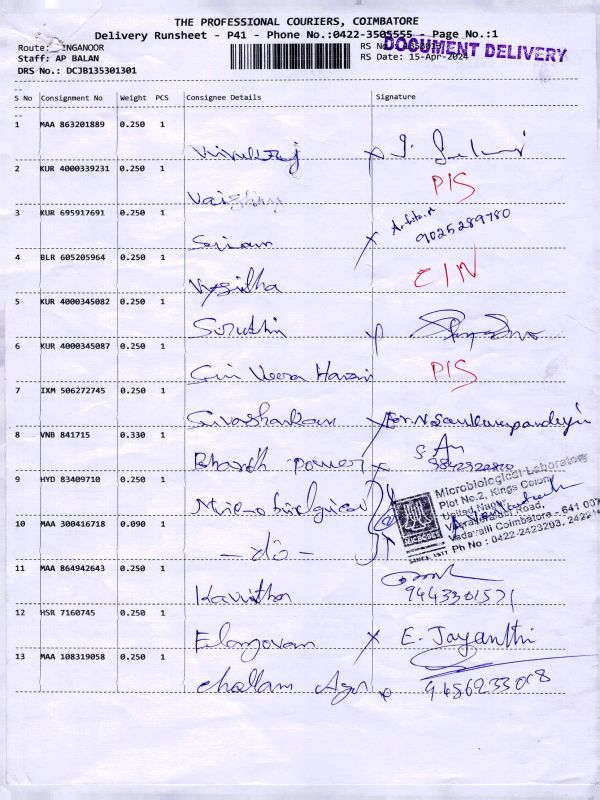 THE PROFESSIONAL COURIERS, COIMBATORE
Delivery Runsheet - P41 - Phone No.:0422-3505555 - Page No.:1
Route: INGANOOR
RS No
DOCUMENT DELIVERY
Staff: AP BALAN
RS Date: 15-Apr-2024
DRS No.: DCJB135301301
S No Consignment No Weight PCS Consignee Details Signature
1 MAA 863201889 0.250 1
2 KUR 4000339231 0.250 1
PIS
3 KUR 695917691 0.250 1
9025289780
Sriram
4 BLR 605205964 0.250 1
CIN
Vysitha
5 KUR 4000345082 0.250 1
Sruthi
6 KUR 4000345087 0.250 1
PIS
Giri Veera Harari
7 IXM 506272745 0.250 1
Sivashankar
8 VNB 841715 0.330 1
Bharath power
9 HYD 83409710 0.250 1
Microbiological
Microbiological Laboratory
Plot No.2, Kings Colony
United Nagar,
Veerakeralam Road,
Vadavalli Coimbatore - 641 007
Ph No : 0422-2423203, 2422
MICROBES
SINCE 1977
10 MAA 300416718 0.090 1
- do -
11 MAA 864942643 0.250 1
Kavitha
9443301571
12 HSR 7160745 0.250 1
Elangovan x E. Jayanthi
13 MAA 108319058 0.250 1
Chellam Agn 9486233018